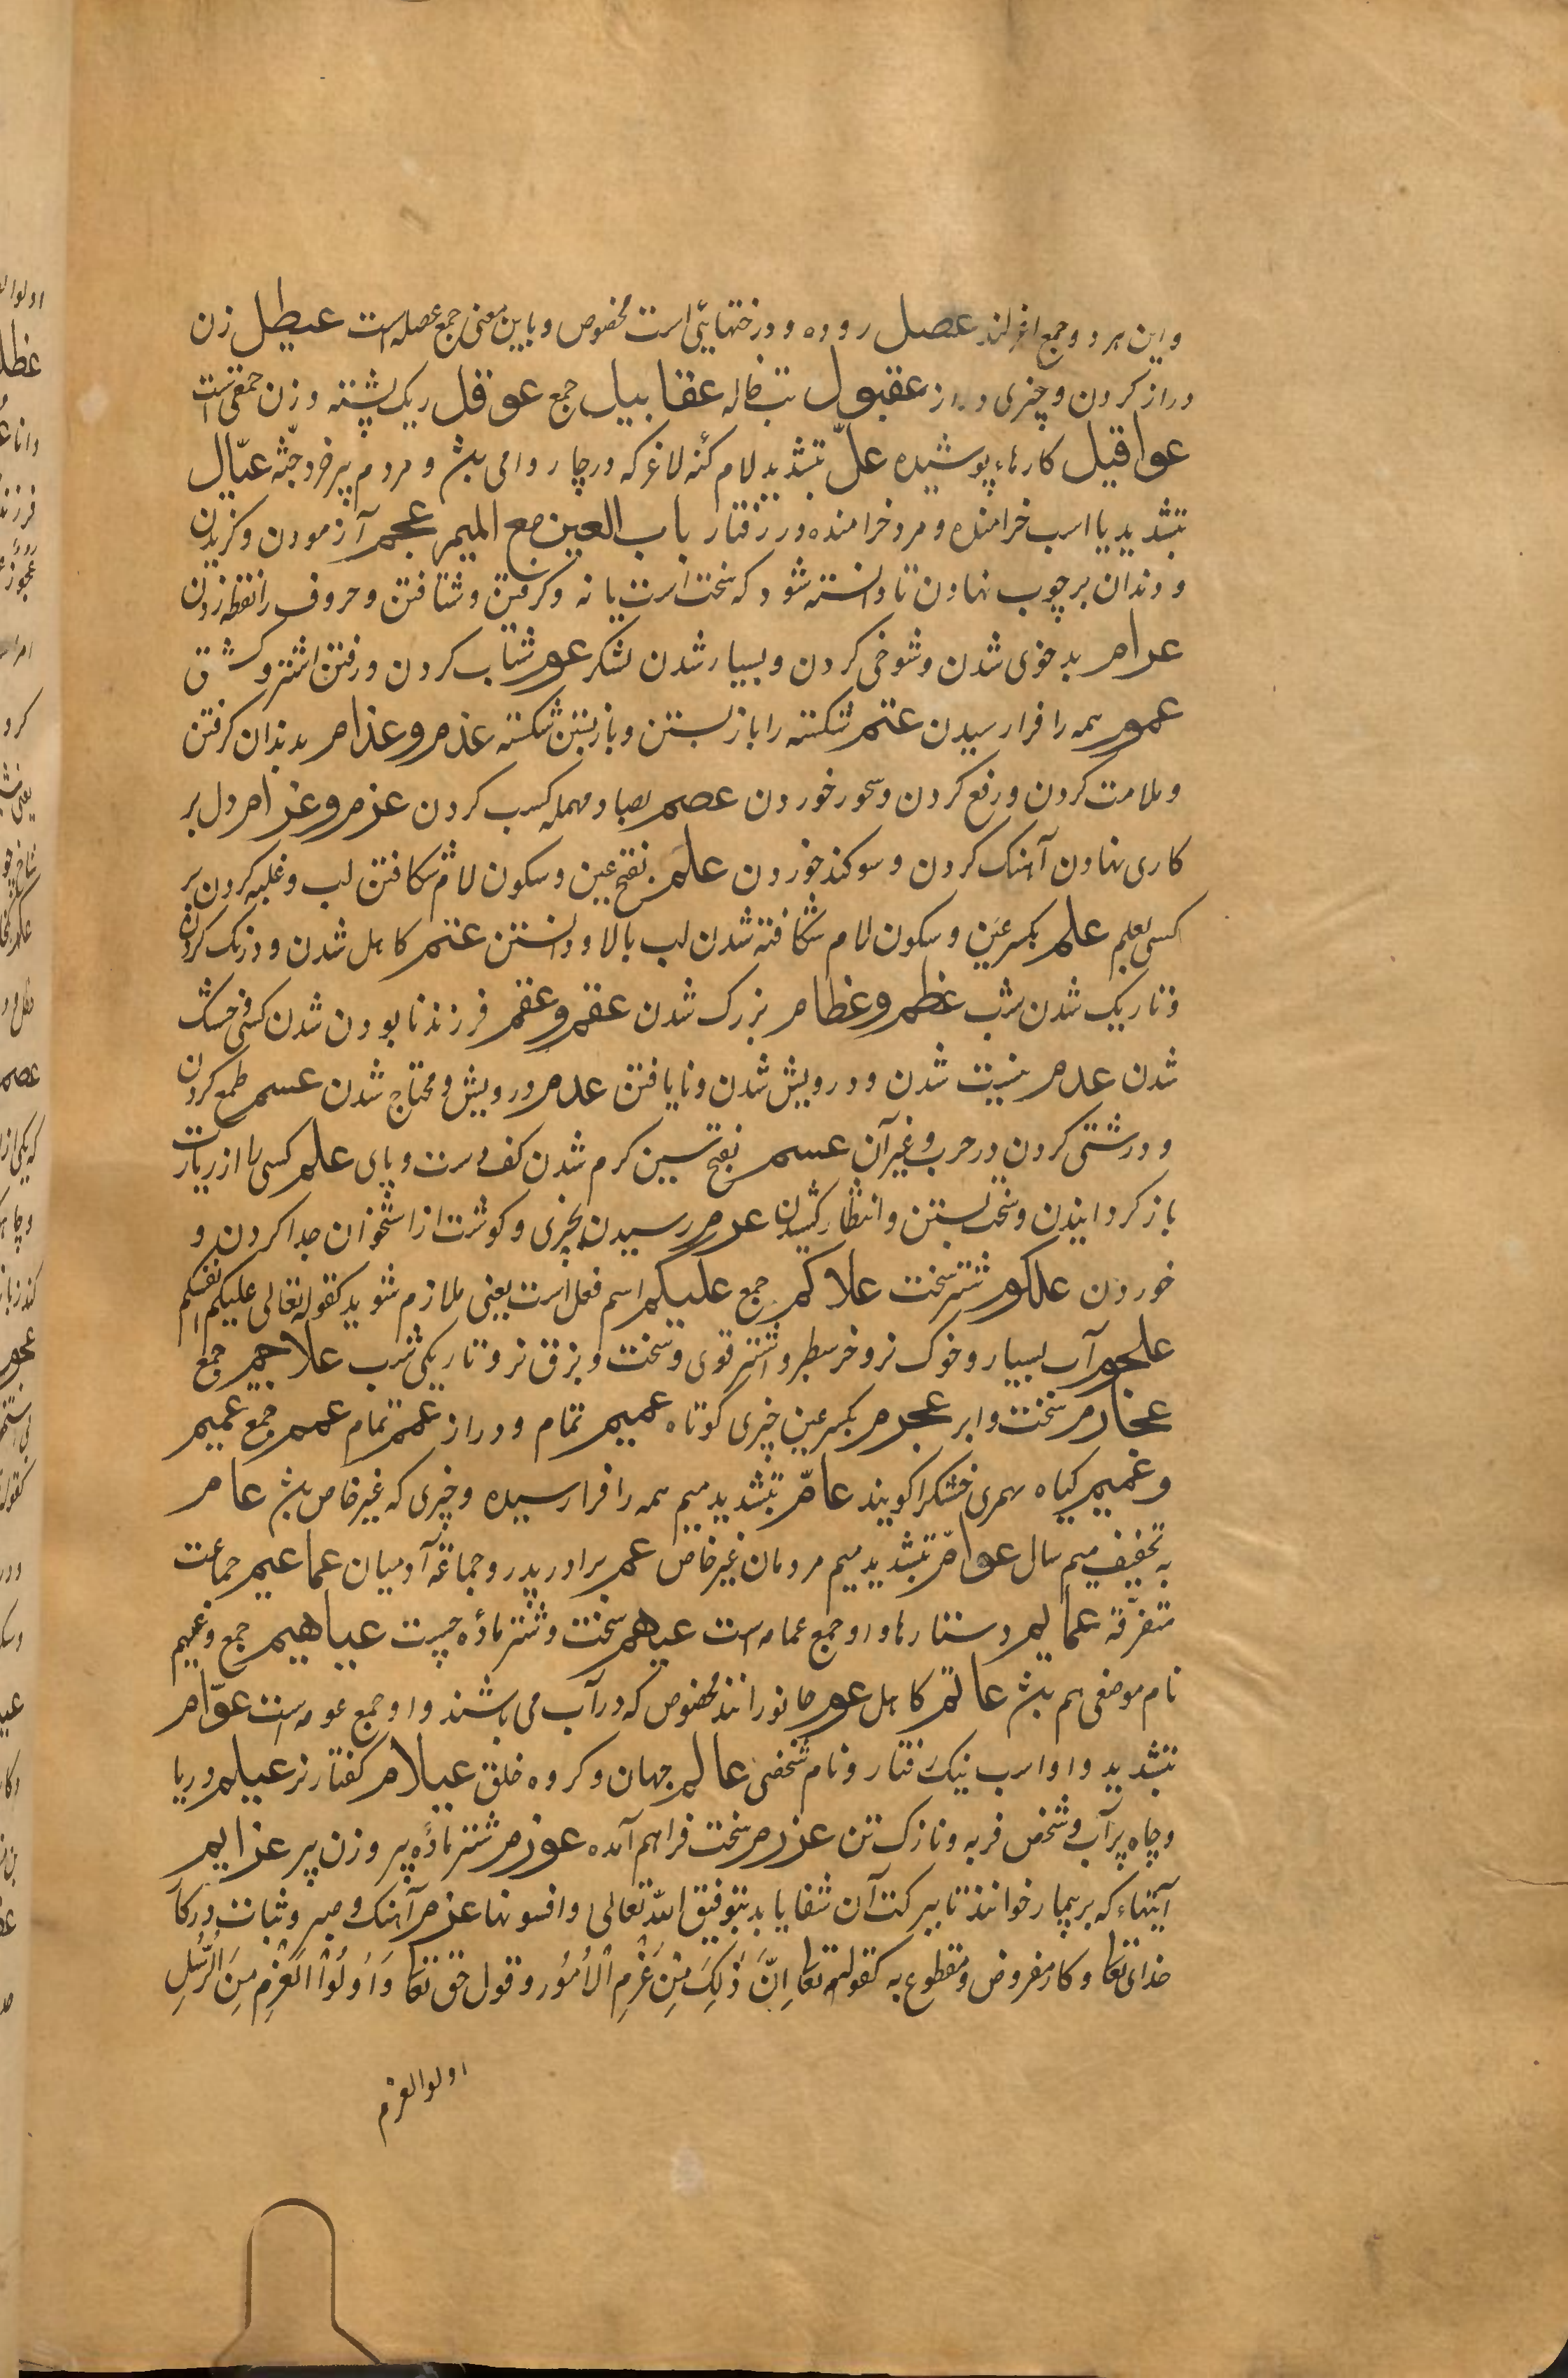 و این هر دو جمع اغرلند عصل روده و درختهایی است مخصوص و باین معنی جمع عصله است عیطل زن
دراز کردن و چیزی دراز عقبول تب خاله عقابیل جمع عوقل ریک پشته و زن حمقی است
عواقیل کارهاء پوشیده علّ بتشدید لام کنه لاغر که در چاروا می باشد و مردم پیر خرد جثه عیّال
بتشدید یا اسب خرامنده و مرد خرامنده در رفتار باب العین مع المیم عجم آزمودن و کزیدن
و دندان بر چوب نهادن تا دانسته شود که سخت است یا نه و کرفتن و شتافتن و حروف را نقطه زدن
عرام بد خوی شدن و شوخی کردن و بسیار شدن لشکر عوم شتاب کردن و رفتن اشتر و کشتی
عموم همه را فرا رسیدن عتم شکسته را باز بستن و باز بستن شکسته عذم و عذام بدندان کرفتن
و ملامت کردن و رفع کردن و سحور خوردن عصم بصاد مهمله کسب کردن عزم و عزام دل بر
کاری نهادن آهنک کردن و سوکند خوردن علم بفتح عین و سکون لام شکافتن لب و غلبه کردن بر
کسی بعلم علم بکسر عین و سکون لام شکافته شدن لب بالا و دانستن عتم کاهل شدن و درنک کردن
و تاریک شدن شب عظم و عظام بزرک شدن عقم و عقم فرزند نابودن شدن کسی خشک
شدن عدم نیست شدن و درویش شدن و نایافتن عدم درویش و محتاج شدن عسم طمع کردن
و درشتی کردن در حرب و غیر آن عسم بفتح سین کرم شدن کف دست و پای علم کسی را از زیارت
باز کردانیدن و سخت بستن و انتظار کشیدن عرم رسیدن بچیزی و کوشت از استخوان جدا کردن و
خوردن علکوم شتر سخت علاکم جمع علیکم اسم فعل است یعنی ملازم شوید کقوله تعالی علیکم انفسکم
علجوم آب بسیار و خوک نر و خر سطبر و اشتر قوی و سخت و بزق نر و تاریکی شب علاجیم جمع
عجارم سخت و ابر عجرم بکسر عین چیزی کوتاه عمیم تمام و دراز عمم تمام عمم جمع عمیم
و عمیم کیاه بهمی خشک را کویند عامّ بتشدید میم همه را فرا رسیده و چیزی که غیر خاص باشد عام
به تخفیف میم سال عوامّ بتشدید میم مردمان غیر خاص عم برادر پدر و جماعه آدمیان عماعیم جماعت
متفرّقة عمایم دستارها و او جمع عمامه است عیهم سخت و شتر ماده چست عیاهیم جمع و عیهم
نام موضعی هم باشد عاتم کاهل عوم جانورانند مخصوص که در آب می باشند و او جمع عومه است عوّام
بتشدید واو اسب نیک رفتار و نام شخصی عالم جهان و کروه خلق عیلام کفتار نر عیلم دریا
و چاه پر آب و شخص فربه و نازک تن عزرم سخت فراهم آمده عوزم شتر ماده پیر و زن پیر عزایم
آیتهاء که بر بیمار خوانند تا ببرکت آن شفا یابد بتوفیق الله تعالی و افسونها عزم آهنک و صبر و ثبات در کار
خدای تعا و کار مفروض و مقطوع به کقوله تعا اِنَّ ذٰلِكَ مِنْ عَزْمِ الْاُمُور و قول حق تعا وَ اُولُوا الْعَزْمِ مِنَ الرُّسُلِ
اولوالعزم